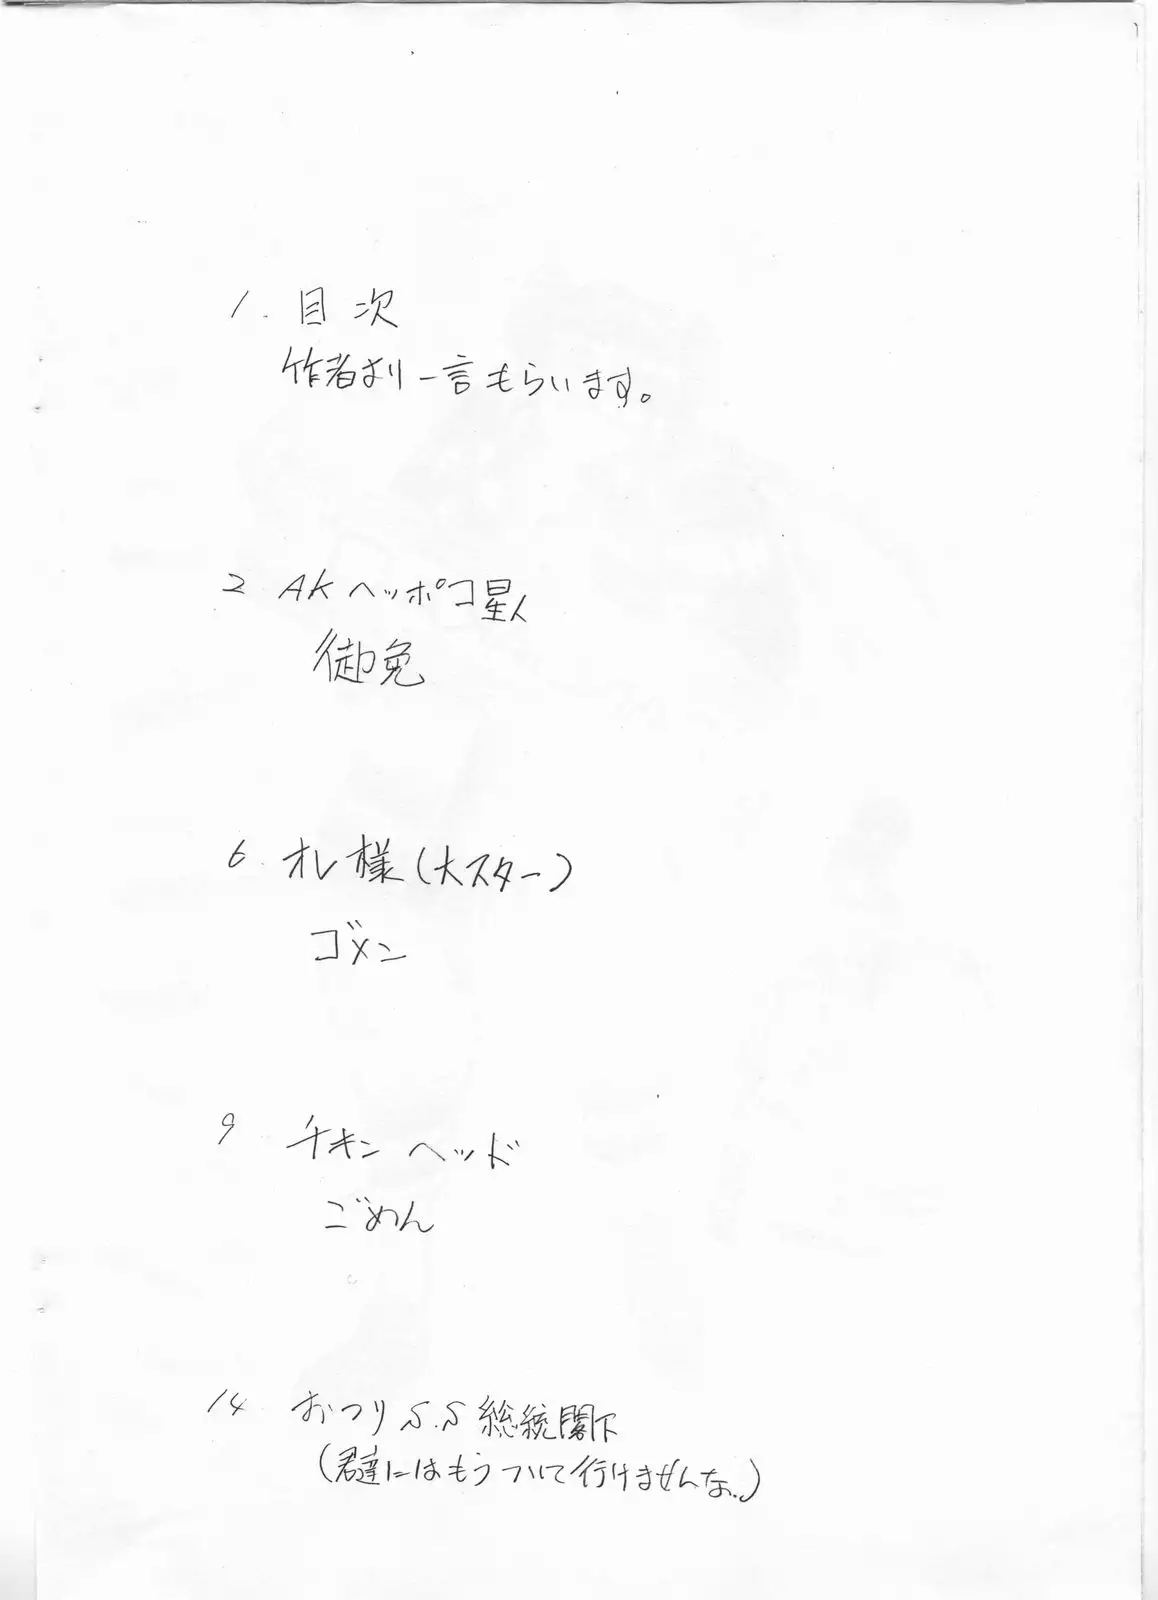 1. 目次
作者より一言もらいます。
2 AKヘッポコ星人
御免
6. オレ様(大スター)
ゴメン
9 チキンヘッド
ごめん
14 おつりS.S総統閣下
(君達にはもうついて行けませんなぁ。)